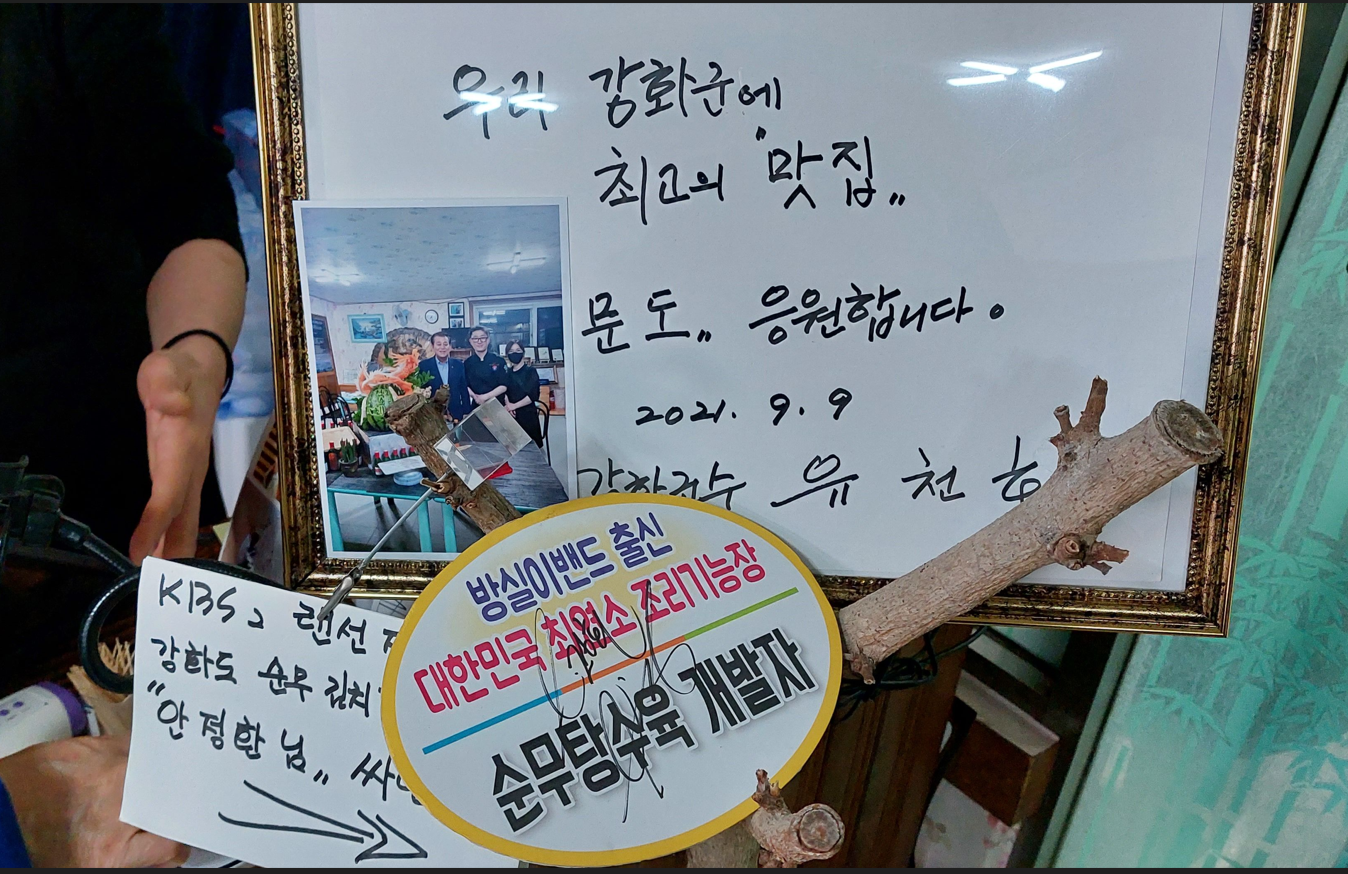 우리 강화군에
최고의 "맛집"
문도" 응원합니다.
2021. 9. 9
강화군수 유천호
KBS2 랜선
강화도 순무 김치
"안정환님"
방실이밴드 출신
대한민국 최연소 조리기능장
순무탕수육 개발자